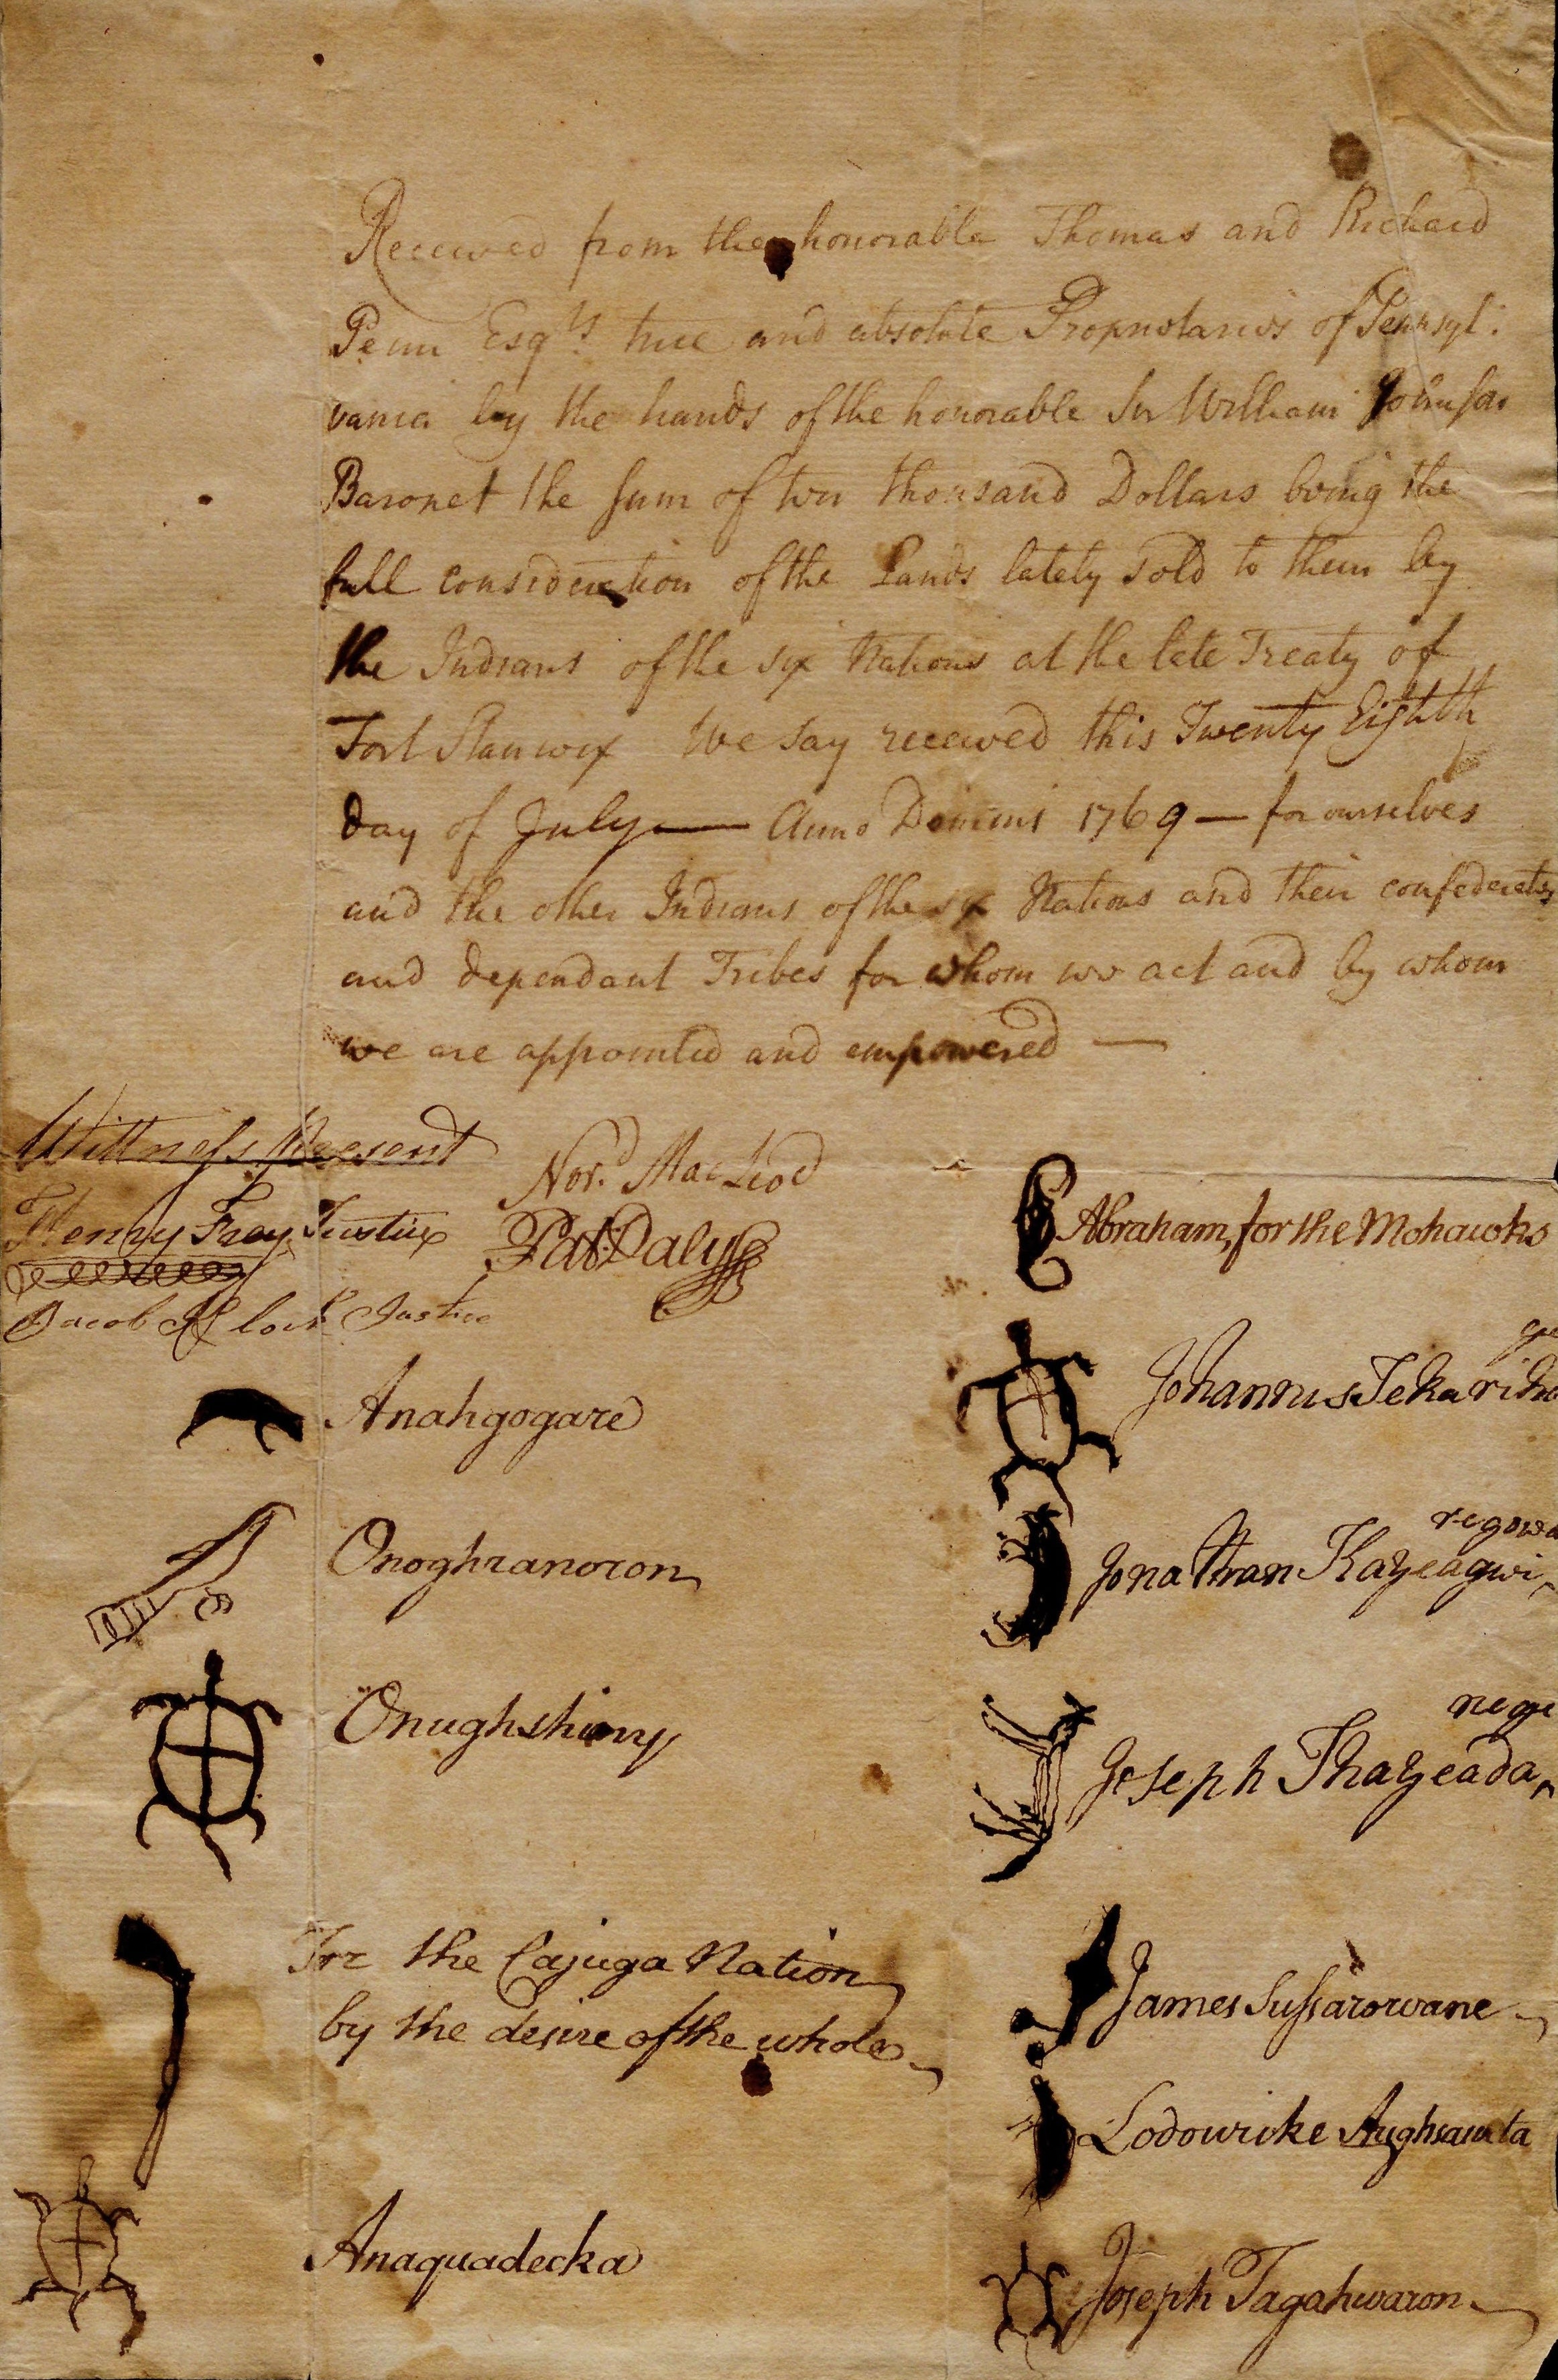 Received from the honorable Thomas and Richard
Penn Esqrs. true and absolute Proprietaries of Pennsyl:
vania by the hands of the honorable Sir William Johnson
Baronet the sum of ten thousand Dollars being the
full consideration of the Lands lately sold to them by
the Indians of the six Nations at the late Treaty of
Fort Stanwix We say received this Twenty Eighth
day of July — Anno Domini 1769 — for ourselves
and the other Indians of the six Nations and their confederates
and dependant Tribes for whom we act and by whom
we are appointed and empowered —
Wittness Present
Henry Frey Justice
Jacob Klock Justice
Nor.d MacLeod
Pat: Daly
Abraham, for the Mohawks
Johannus Tekariho
ge
Anahgogare
Jonathan Kayeagwi
regowa
Onoghranoron
Onughshiny
Joseph Thayeada
nege
For the Cajuga Nation
by the desire of the whole
James Sussarowane
Lodowike Aughsawata
Anaquadecka
Joseph Tagahwaron